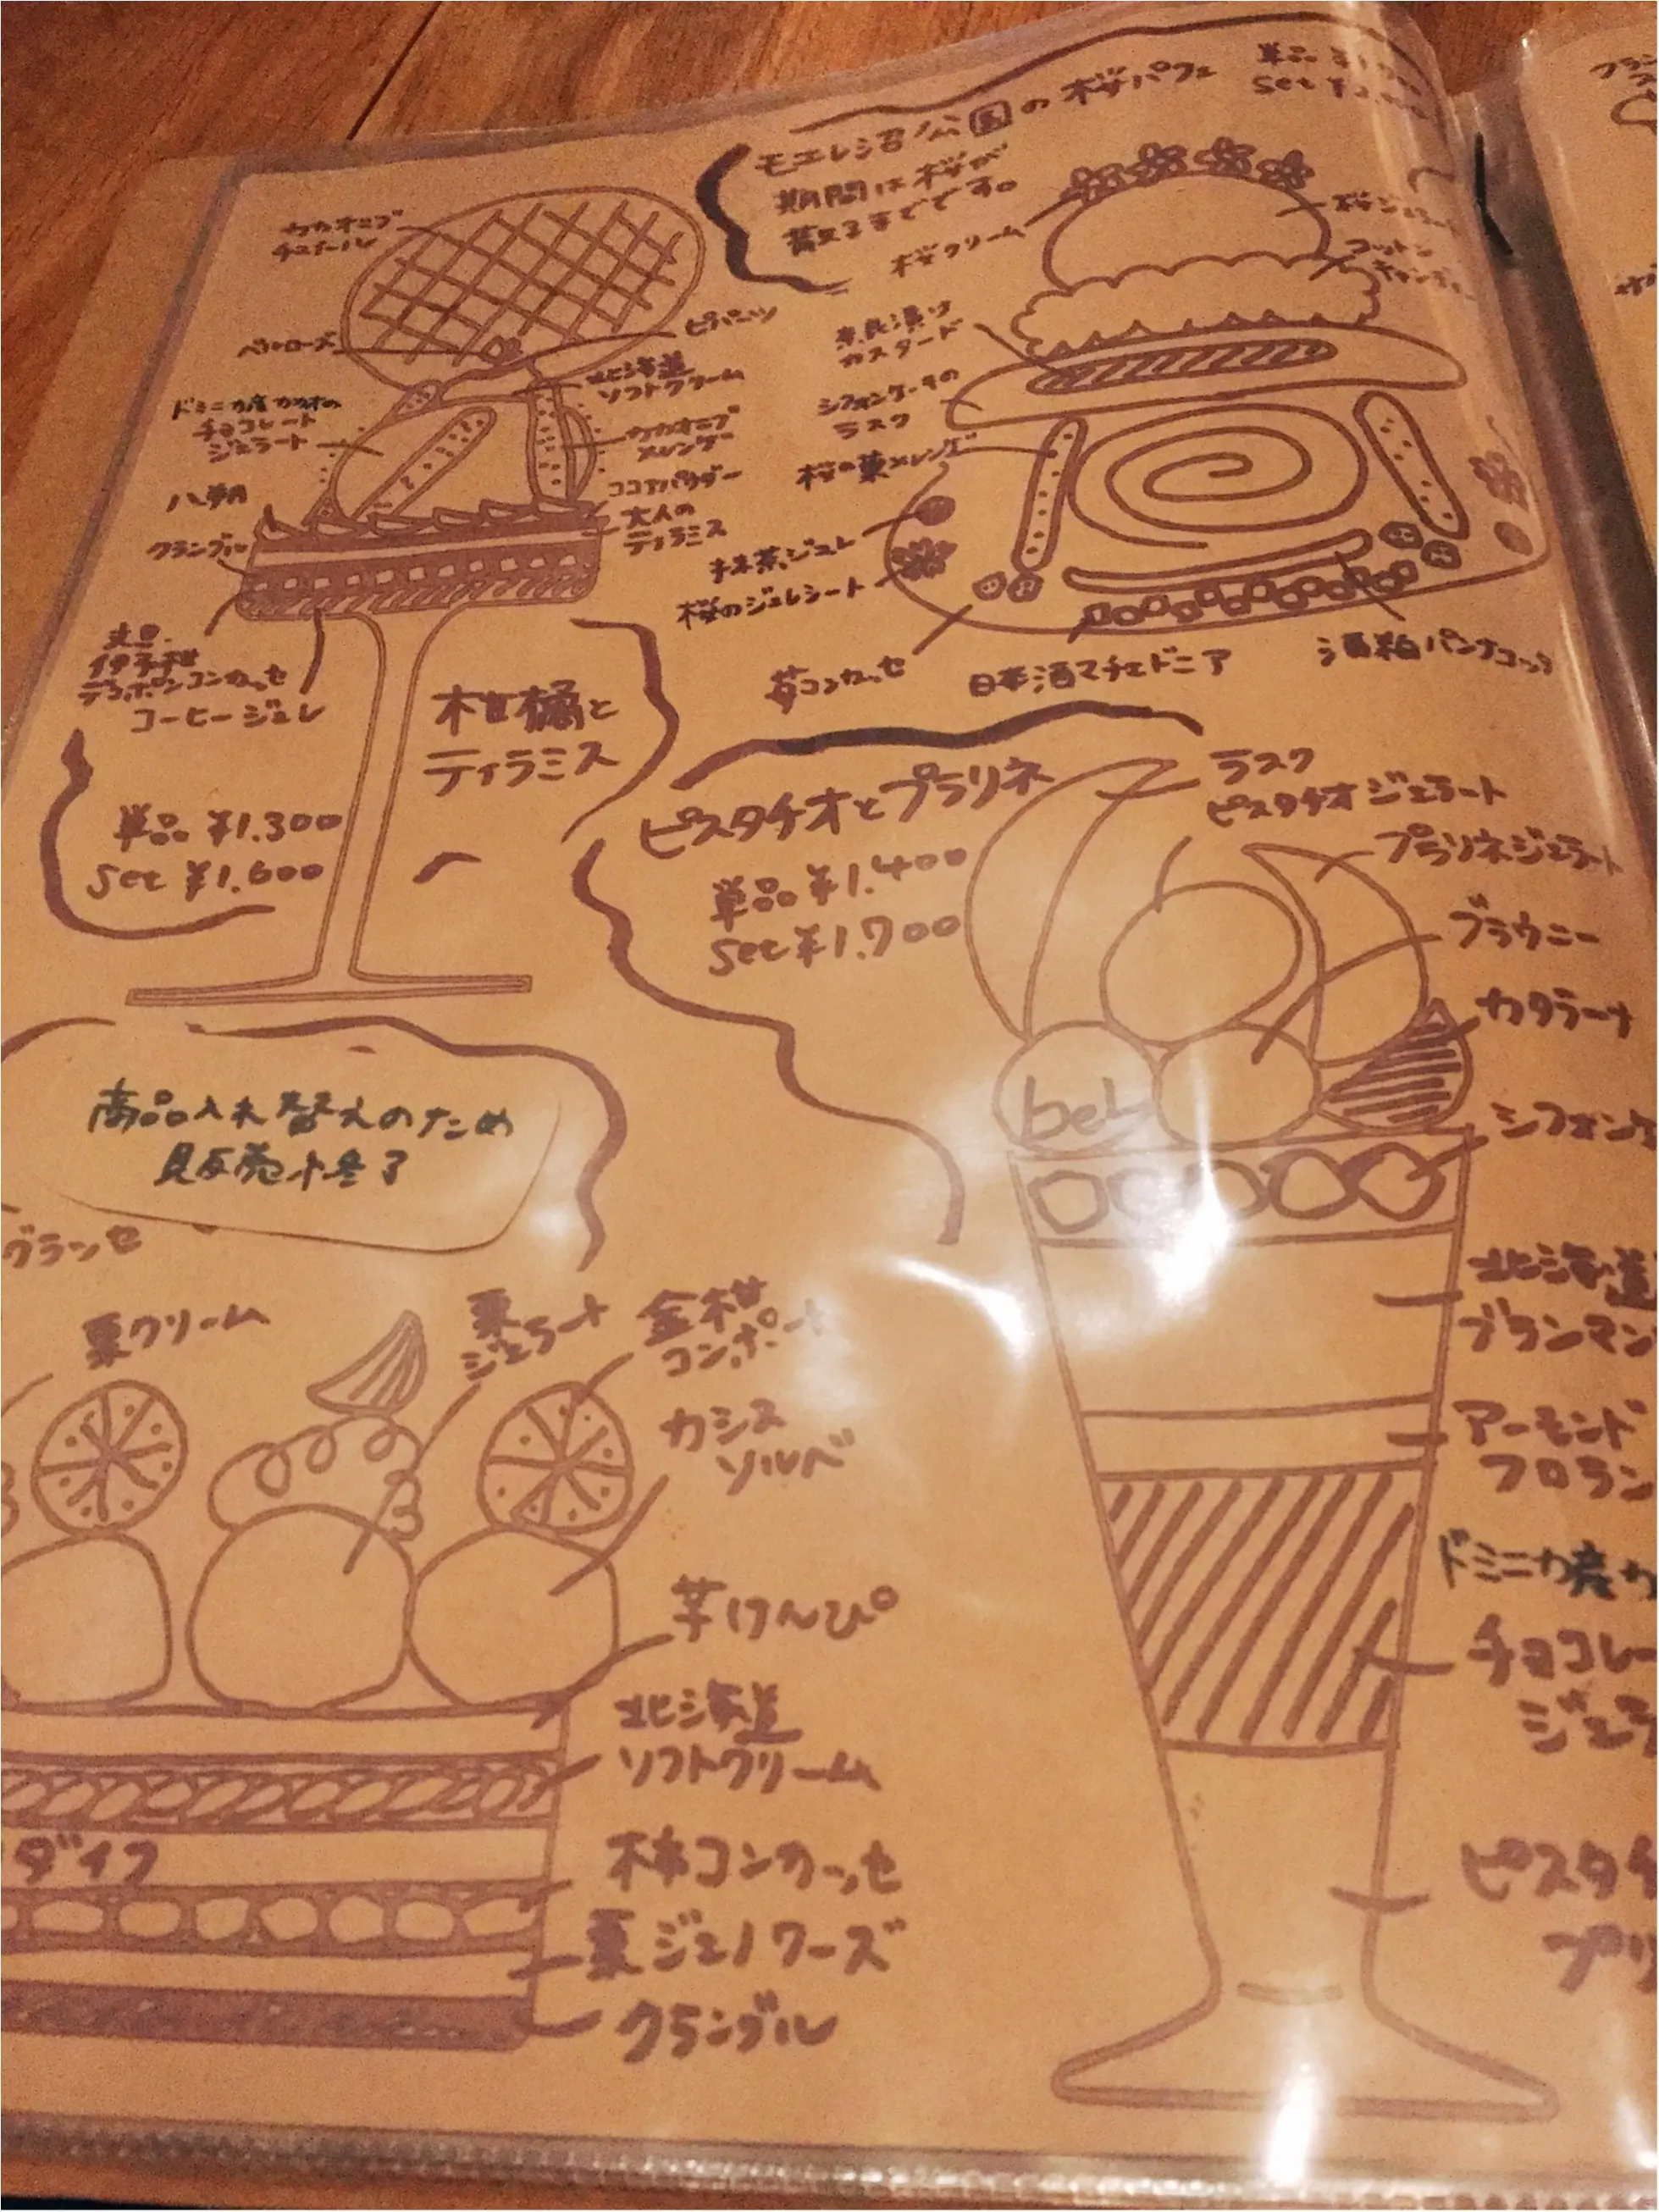 モエレ沼公園の桜パフェ
単品
set
期間は桜が
散るまでです。
桜クリーム
コットン
キャンディー
奈良漬け
カスタード
シフォンケーキの
ラスク
桜の葉メレンゲ
抹茶ジュレ
桜のジュレシート
苺コンカッセ
日本酒マチェドニア
酒粕パンナコッタ
カカオニブ
チュイール
ベルローズ
ピパーツ
北海道
ソフトクリーム
ドミニカ産カカオの
チョコレート
ジェラート
カカオニブ
メレンゲ
ココアパウダー
八朔
大人の
ティラミス
クランブル
デコポンコンカッセ
コーヒージュレ
柑橘と
ティラミス
単品 ¥1.300
set ¥1.600
ピスタチオとプラリネ
単品 ¥1.400
set ¥1.700
ラスク
ピスタチオジェラート
プラリネジェラート
ブラウニー
カタラーナ
シフォンケ
北海道
ブランマン
アーモンド
フロラン
ドミニカ産カ
チョコレー
ジェラ
ピスタチ
プリ
商品入れ替えのため
販売终了
グランセ
栗クリーム
栗
ジェラート
金柑
コンポート
カシス
ソルベ
芋けんぴ
北海道
ソフトクリーム
ダイフ
柿コンカッセ
栗ジェノワーズ
クランブル